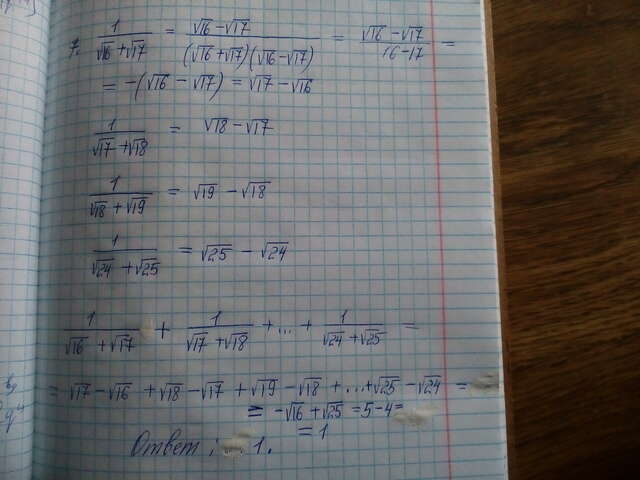 7. 1/(√16 + √17) = (√16 - √17)/((√16 + √17)(√16 - √17)) = (√16 - √17)/(16 - 17) =
= -(√16 - √17) = √17 - √16
1/(√17 + √18) = √18 - √17
1/(√18 + √19) = √19 - √18
1/(√24 + √25) = √25 - √24
1/(√16 + √17) + 1/(√17 + √18) + ... + 1/(√24 + √25) =
= √17 - √16 + √18 - √17 + √19 - √18 + ... + √25 - √24 =
= -√16 + √25 = 5 - 4 =
= 1
Ответ: 1.